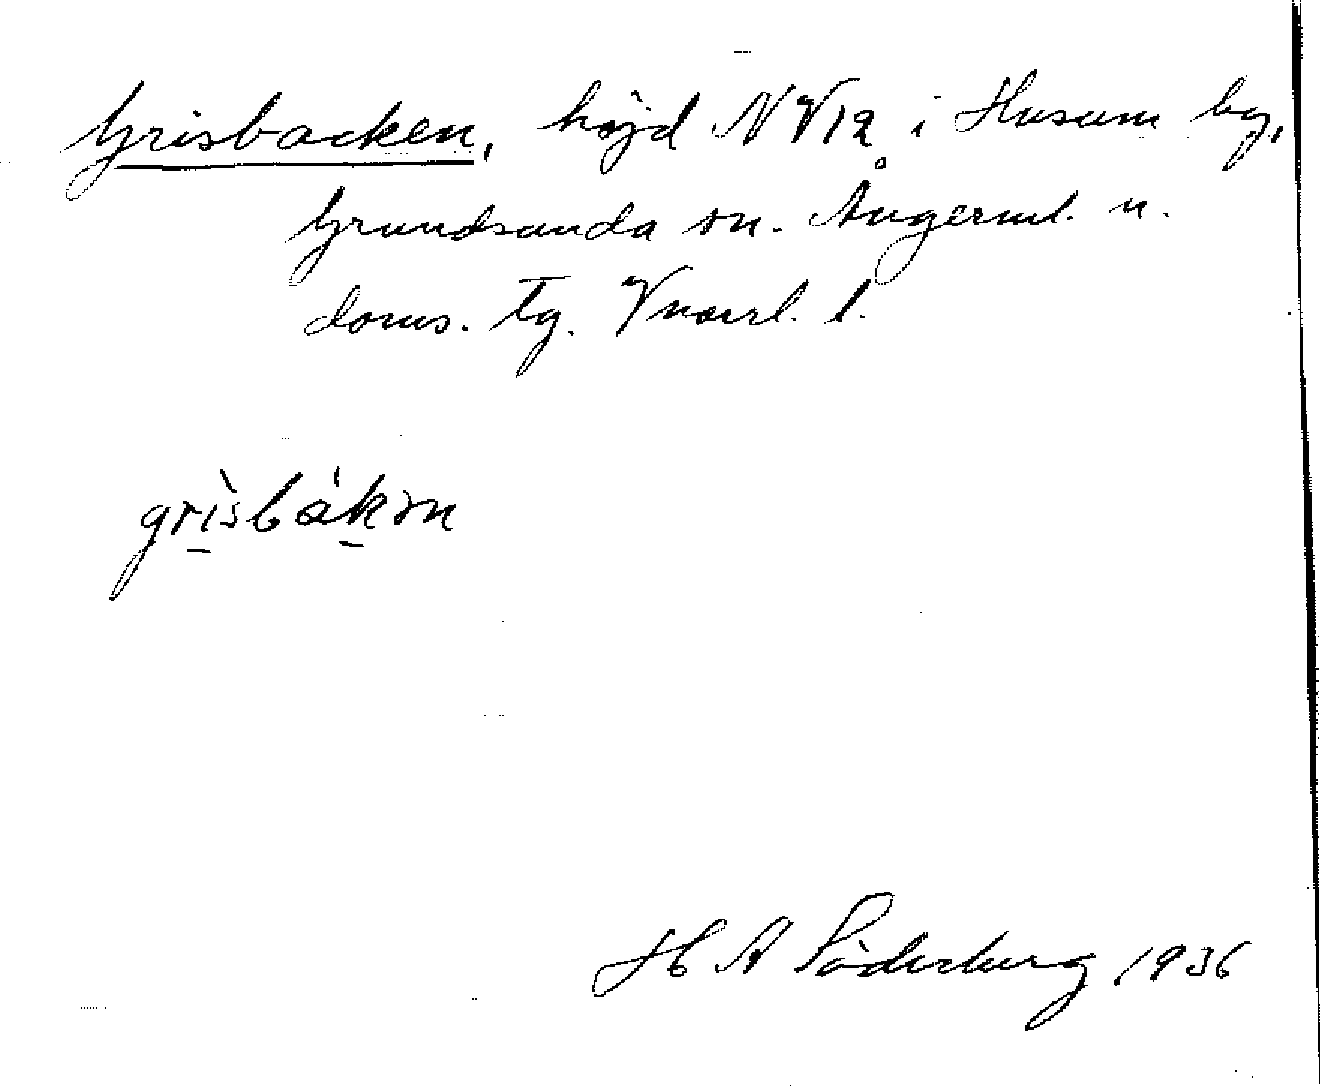 Grisbacken, höjd NV12 i Husum by,
Grundsunda sn. Ångerml. n.
doms. tg. Vnorrl. l.
grìsbákən
H A Söderberg 1936